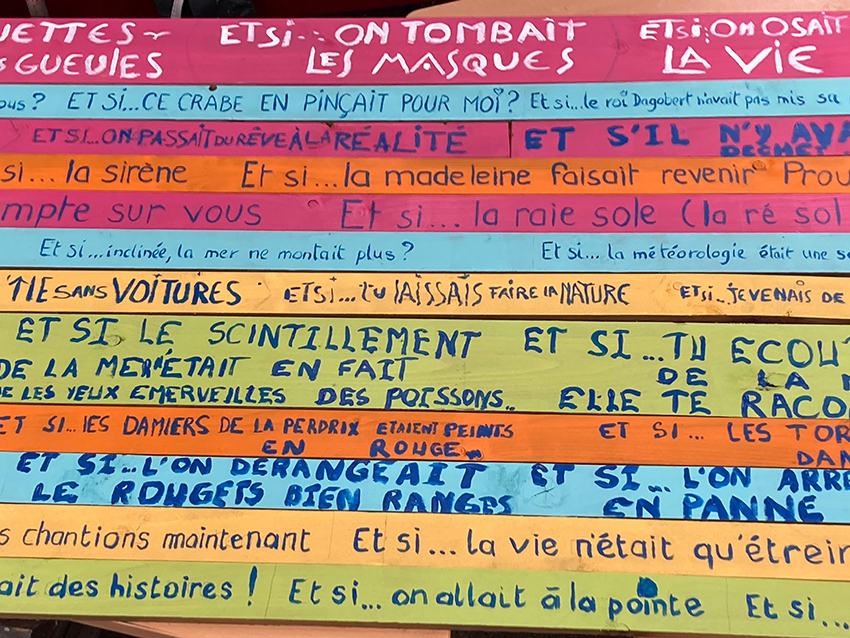 ETSI... ON TOMBAIT ETSI...ON OSAIT
GUEULES LES MASQUES LA VIE
? ET SI...CE CRABE EN PINÇAIT POUR MOI? Et si...le roi Dagobert n'avait pas mis sa
ET SI...ON PASSAIT DU RÊVE À LA RÉALITÉ ET S'IL N'Y
si... la sirène Et si...la madeleine faisait revenir
sur vous Et si... la raie sole (la ré sol
Et si...inclinée, la mer ne montait plus? Et si... la météorologie était une
SANS VOITURES ETSI...TU LAISSAIS FAIRE LA NATURE ETSI...JE VENAIS DE
ET SI LE SCINTILLEMENT ET SI...TU
DE LA MER N'ÉTAIT EN FAIT DE LA
LES YEUX EMERVEILLES DES POISSONS.. ELLE TE
ET SI...LES DAMIERS DE LA PERDRIX ETAIENT PEINTS ET SI... LES
EN ROUGE...
ET SI...L'ON DERANGEAIT ET SI... L'ON
LE ROUGETS BIEN RANGES EN PANNE
chantions maintenant Et si...la vie n'était
des histoires! Et si... on allait à la pointe Et si...